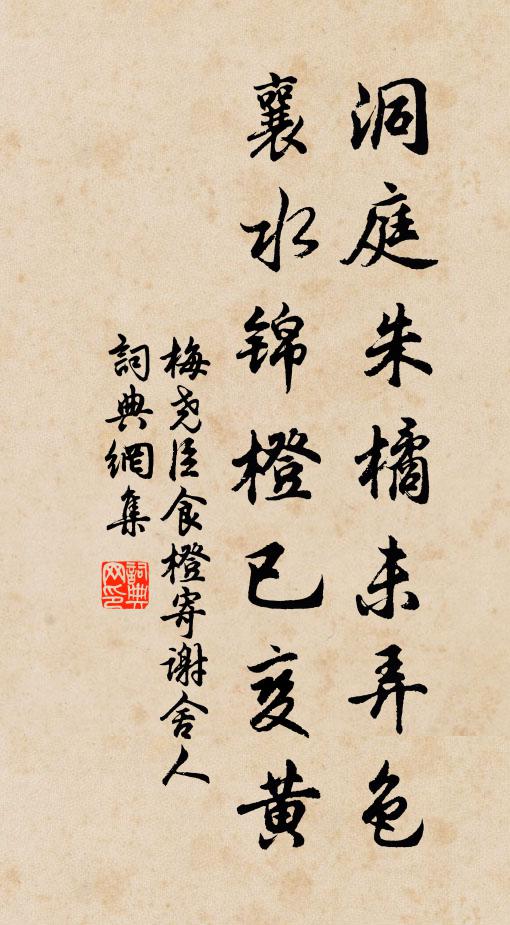 洞庭朱橘未弄色
襄水錦橙已变黃
梅尧臣食橙寄谢舍人
詞典網集
詞典网印